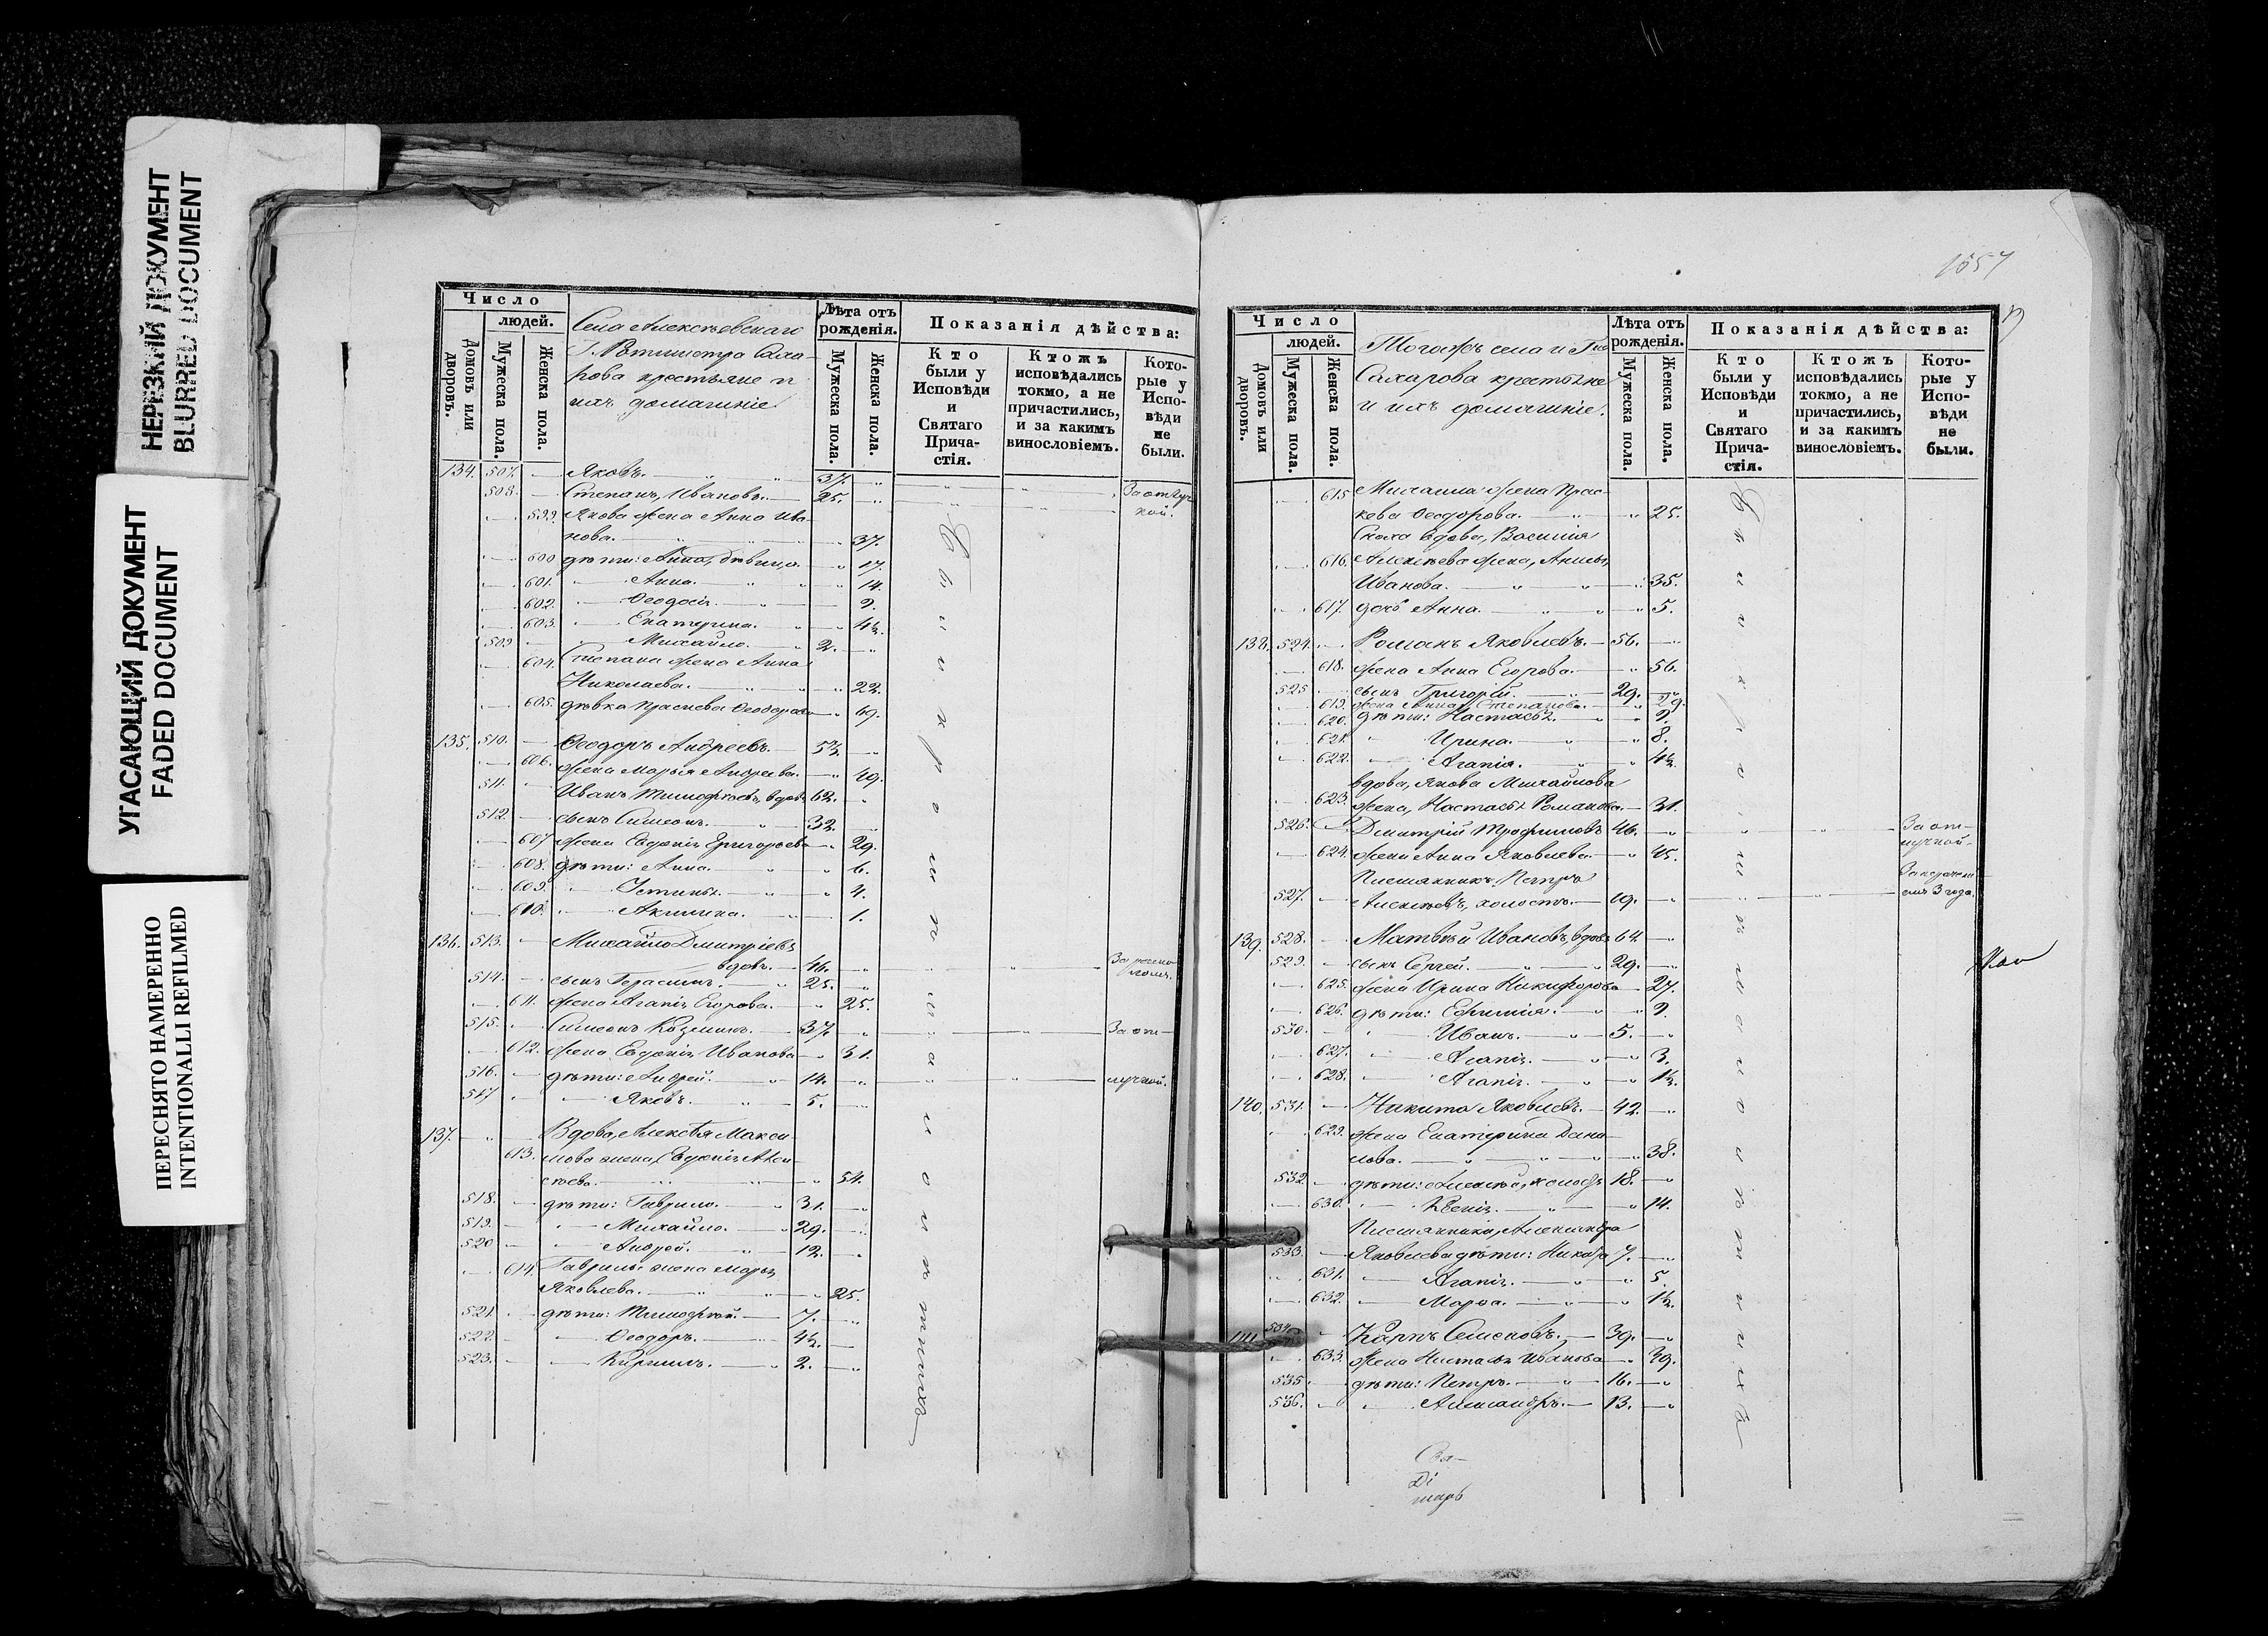 НЕРЕЗКИЙ ДОКУМЕНТ
BLURRED DOCUMENT
УГАСАЮЩИЙ ДОКУМЕНТ
FADED DOCUMENT
ПЕРЕСНЯТО НАМЕРЕННО
INTENTIONALLI REFILMED
Число
людей.
Домовъ или дворовъ.
Мужеска пола.
Женска пола.
Села Алексѣевскаго
Г. Ротмистра Саха-
рова крестьяне и
ихъ домашніе
Лѣта отъ рожденія.
Мужеска пола.
Женска пола.
Показанія дѣйства:
Кто были у Исповѣди и Святаго Причастія.
Ктожъ исповѣдались токмо, а не причастились, и за какимъ винословіемъ.
Которые у Исповѣди не были.
134. 507. Яковъ. 37.
508. Степанъ Ивановъ. 25. За отлуч
кой.
599. Якова жена Анна Ива-
нова. 37.
600 дѣти: Анна, дѣвица. 17.
601. Анна. 14.
602. Ѳеодосія. 9.
603. Екатерина. 4½.
509 Михайло. 2.
604. Степана жена Анна
Николаева. 22.
605. дѣвка Ѳеодорова 69.
135. 510. Ѳеодоръ Андреевъ. 52.
606. жена Марья Андреева. 49.
511. Иванъ Тимоѳеевъ, вдовъ 62.
512. сынъ Симеонъ. 32.
607 жена Евдокія Григорьева 29.
608. дѣти: Анна. 6.
609. Устинья. 4.
610. Акилина. 1.
136. 513. Михайло Дмитріевъ
вдовъ. 46.
514. сынъ Герасимъ. 25.
611. жена Агапія Егорова. 25.
515. Симеонъ Козминъ. 37. За от-
612. жена Евдокія Иванова 31.
516. дѣти: Андрей. 14. лучкой.
517 Яковъ. 5.
137. Вдова, Алексѣя Макси-
613. мова жена, Евдокія Алек-
сѣева. 54.
518. дѣти: Гаврило. 31.
519. Михайло. 29.
520 Андрей. 12.
614. Гаврилы жена Марья
Яковлева. 25.
521. дѣти: Тимоѳей. 7.
522. Ѳеодоръ. 4½.
523. Кириллъ. 2.
1657
Число
людей.
Домовъ или дворовъ.
Мужеска пола.
Женска пола.
Тогожъ села и Г-на
Сахарова крестьяне
и ихъ домашніе.
Лѣта отъ рожденія.
Мужеска пола.
Женска пола.
Показанія дѣйства:
Кто были у Исповѣди и Святаго Причастія.
Ктожъ исповѣдались токмо, а не причастились, и за какимъ винословіемъ.
Которые у Исповѣди не были.
615 Михаила жена Прас-
кева Ѳеодорова. 25.
Сноха вдова, Василія
616. Алексѣева жена, Анисья
Иванова. 35.
617. дочь Анна. 5.
138. 524. Романъ Яковлевъ. 56.
618. жена Анна Егорова. 56.
525 сынъ Григорій. 29.
619. жена Анна Степанова. 29.
620. дѣти: Настасья. 9.
621. Ирина. 8.
622. Агапія. 4½.
вдова, Якова Михайлова
623. жена, Настасья Романова. 31.
526. Дмитрій Трофимовъ 46. За от-
лучкой.
624. жена Анна Яковлева. 45.
Племянникъ Петръ
527. Алексѣевъ, холостъ. 19. 3 года.
139. 528. Матвѣй Ивановъ, вдовъ 64.
529. сынъ Сергей. 29.
625. жена Ирина Никифорова 27.
626. дѣти: Ефимія. 9.
530. Иванъ. 5.
627. Агапія. 3.
628. Агапія. 1½.
140. 531. Никита Яковлевъ. 42.
629. жена Екатерина Дани-
лова. 38.
532 дѣти: Алексѣй, холостъ 18.
630. Ксенія. 14.
Племянника, Александра
533. Яковлева дѣти: Никита 7.
631. Агапія. 5.
632. Марѳа. 1½.
141 534 Карпъ Семеновъ. 39.
633. жена Настасья Иванова 39.
535 дѣти: Петръ. 16.
536. Александръ. 13.